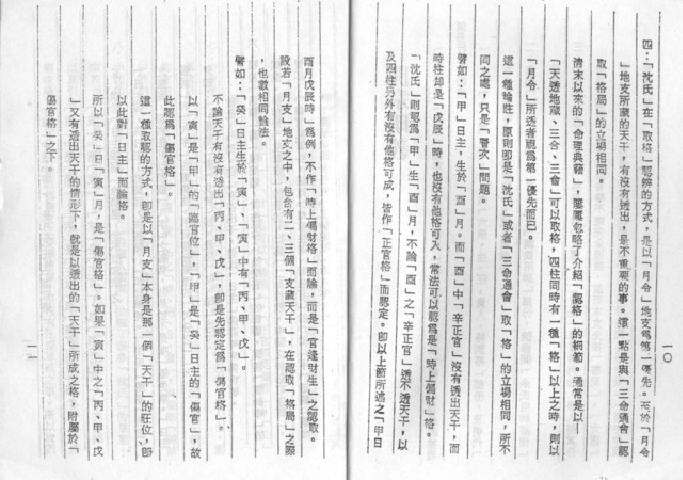 四:「沈氏」在「取格」認辨的方式,是以「月令」地支為第一優先。至於「月令
」地支所藏的天干,有沒有透出,是不重要的事。這一點是與「三命通會」認
取「格局」的立場相同。
清末以來的「命理典籍」,屢屢忽略了介紹「認格」的細節。通常是以—
「天透地藏、三合、三會」可以取格,四柱同時有一種「格」以上之時,則以
「月令」所透者視為第一優先而已。
這一種論性,原則即是「沈氏」或者「三命通會」取「格」的立場相同,所不
同之處,只是「層次」問題。
譬如:「甲」日主,生於「酉」月。而「酉」中「辛正官」沒有透出天干,而
時柱却是「戊辰」時,也沒有他格可入,常法可以認為是「時上偏財」格。
「沈氏」則認為「甲」生「酉」月,不論「酉」之「辛正官」透不透天干,以
及四柱另外有沒有他格可成,皆作「正官格」而認定。即以上節所述之「甲日
一〇
酉月戊辰時」為例,不作「時上偏財格」而論。而是「官逢財生」之認取。
設若「月支」地支之中,包含有二、三個「支藏天干」,在認取「格局」之際
,也數相同論法。
譬如:「癸」日主生於「寅」,「寅」中有「丙、甲、戊」。
不論天干有沒有透出「丙、甲、戊」,卽是先認定為「傷官格」。
以「寅」是「甲」的「臨官位」,「甲」是「癸」日主的「傷官」,故
此認為「傷官格」。
這一種取認的方式,卽是以「月支」本身是那一個「天干」的旺位,卽
以此對「日主」而論格。
所以「癸」日「寅」月,是「傷官格」。如果「寅」中之「丙、甲、戊
」又有透出天干的情形下,就是以透出的「天干」所成之格,附屬於「
傷官格」之下。
一一